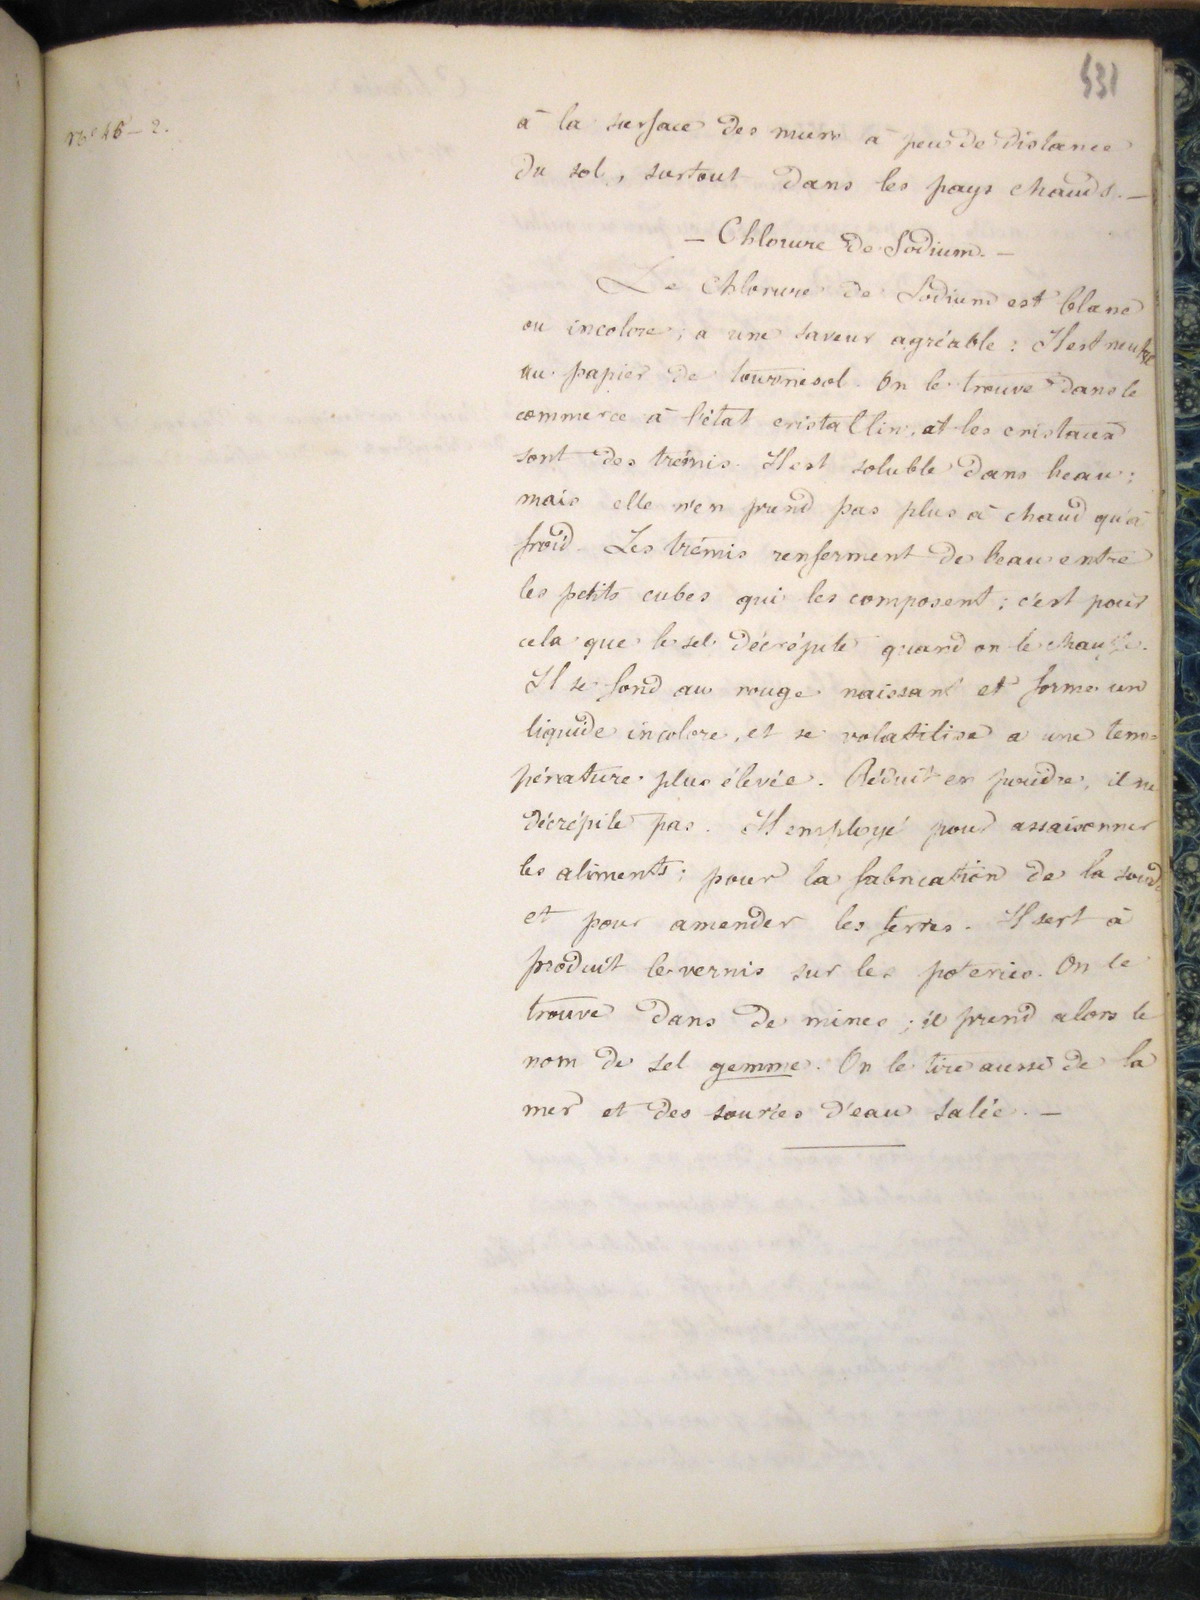 531
n° 46 - 2.
à la surface des murs à peu de distance
du sol, surtout dans les pays chauds. —
— Chlorure de Sodium. —
Le Chlorure de Sodium est blanc
ou incolore, a une saveur agréable : Il est neutre
au papier de tournesol. On le trouve dans le
commerce à l'état cristallin, et les cristaux
sont des trémis. Il est soluble dans l'eau ;
mais elle n'en prend pas plus à chaud qu'à
froid. Les trémis renferment de l'eau entre
les petits cubes qui les composent ; c'est pour
cela que le sel décrépite quand on le chauffe.
Il se fond au rouge naissant et forme un
liquide incolore, et se volatilise a une tem=
pérature plus élevée. Réduit en poudre, il ne
décrépite pas. Il employé pour assaisonner
les aliments ; pour la fabrication de la soude
et pour amender les terres. Il sert à
produit le vernis sur les poteries. On le
trouve dans de mines ; il prend alors le
nom de sel gemme. On le tire aussi de la
mer et des sources d'eau salée. —